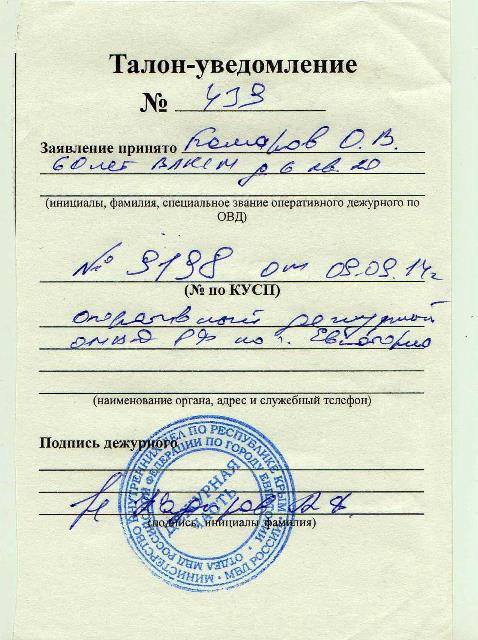 Талон-уведомление
№ 439
Заявление принято Комаров О.В.
60 лет ВЛКСМ д 6 кв. 20
(инициалы, фамилия, специальное звание оперативного дежурного по
ОВД)
№ 9198 от 09.09.14г
(№ по КУСП)
Оперативный дежурный
ОМВД РФ по г. Евпатория
(наименование органа, адрес и служебный телефон)
Подпись дежурного
(подпись, инициалы фамилия)
МИНИСТЕРСТВО ВНУТРЕННИХ ДЕЛ ПО РЕСПУБЛИКЕ КРЫМ • МВД РОССИИ •
ОТДЕЛ МВД РОССИЙСКОЙ ФЕДЕРАЦИИ ПО ГОРОДУ ЕВПАТОРИИ
ДЕЖУРНАЯ
ЧАСТЬ